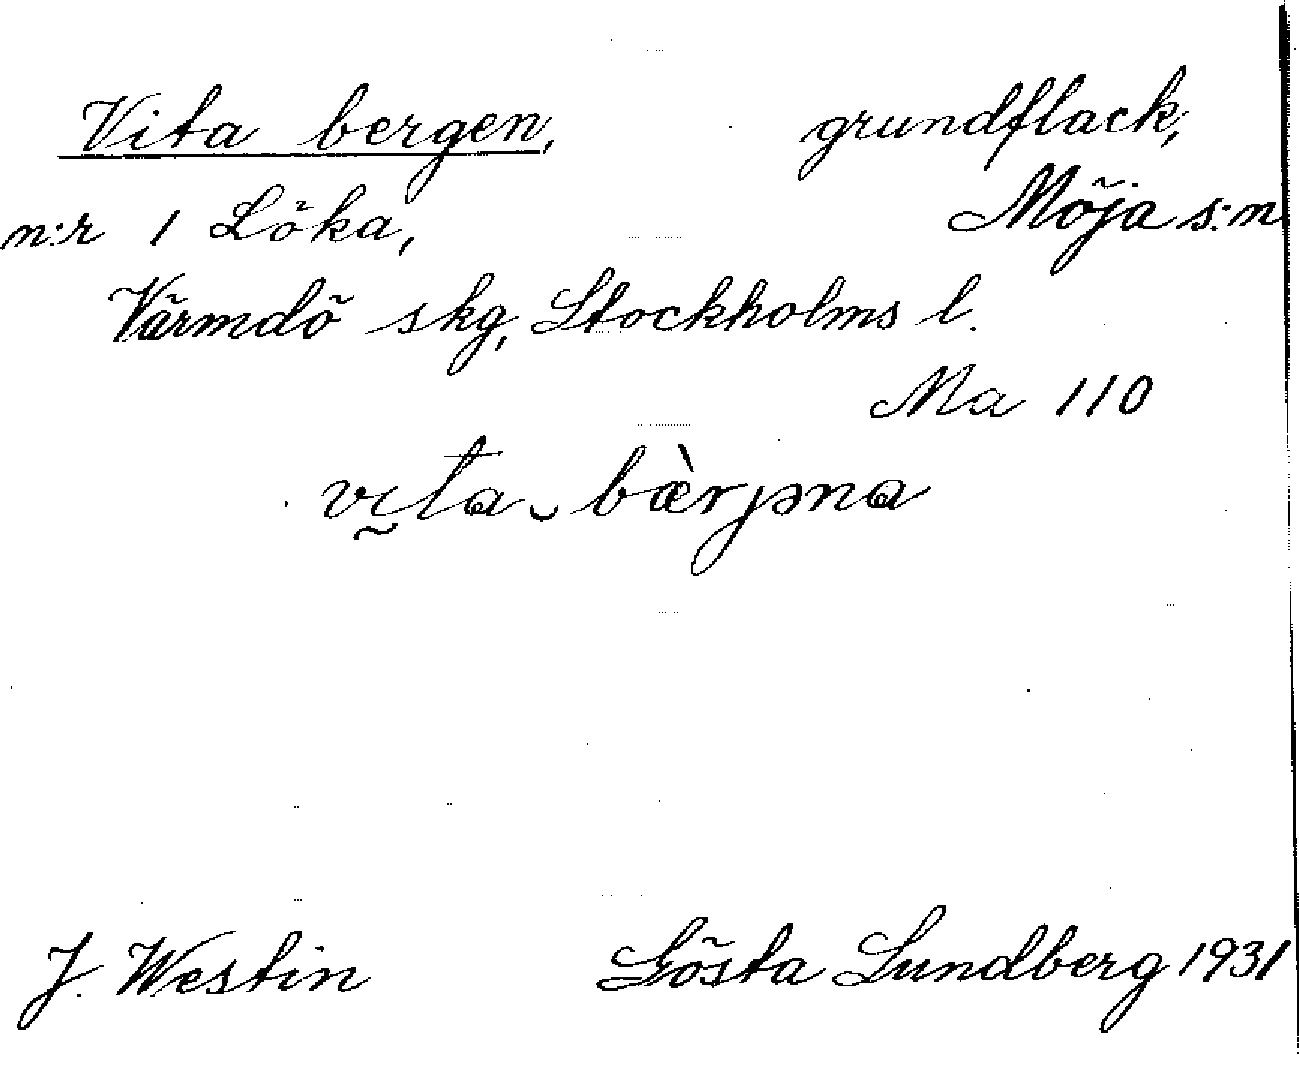 Vita bergen, grundflack,
n:r 1 Löka, Möja s:n
Värmdö skg, Stockholms l.
Ma 110
vı̰ta‿bæ̀rȷəna
J. Westin Gösta Lundberg 1931